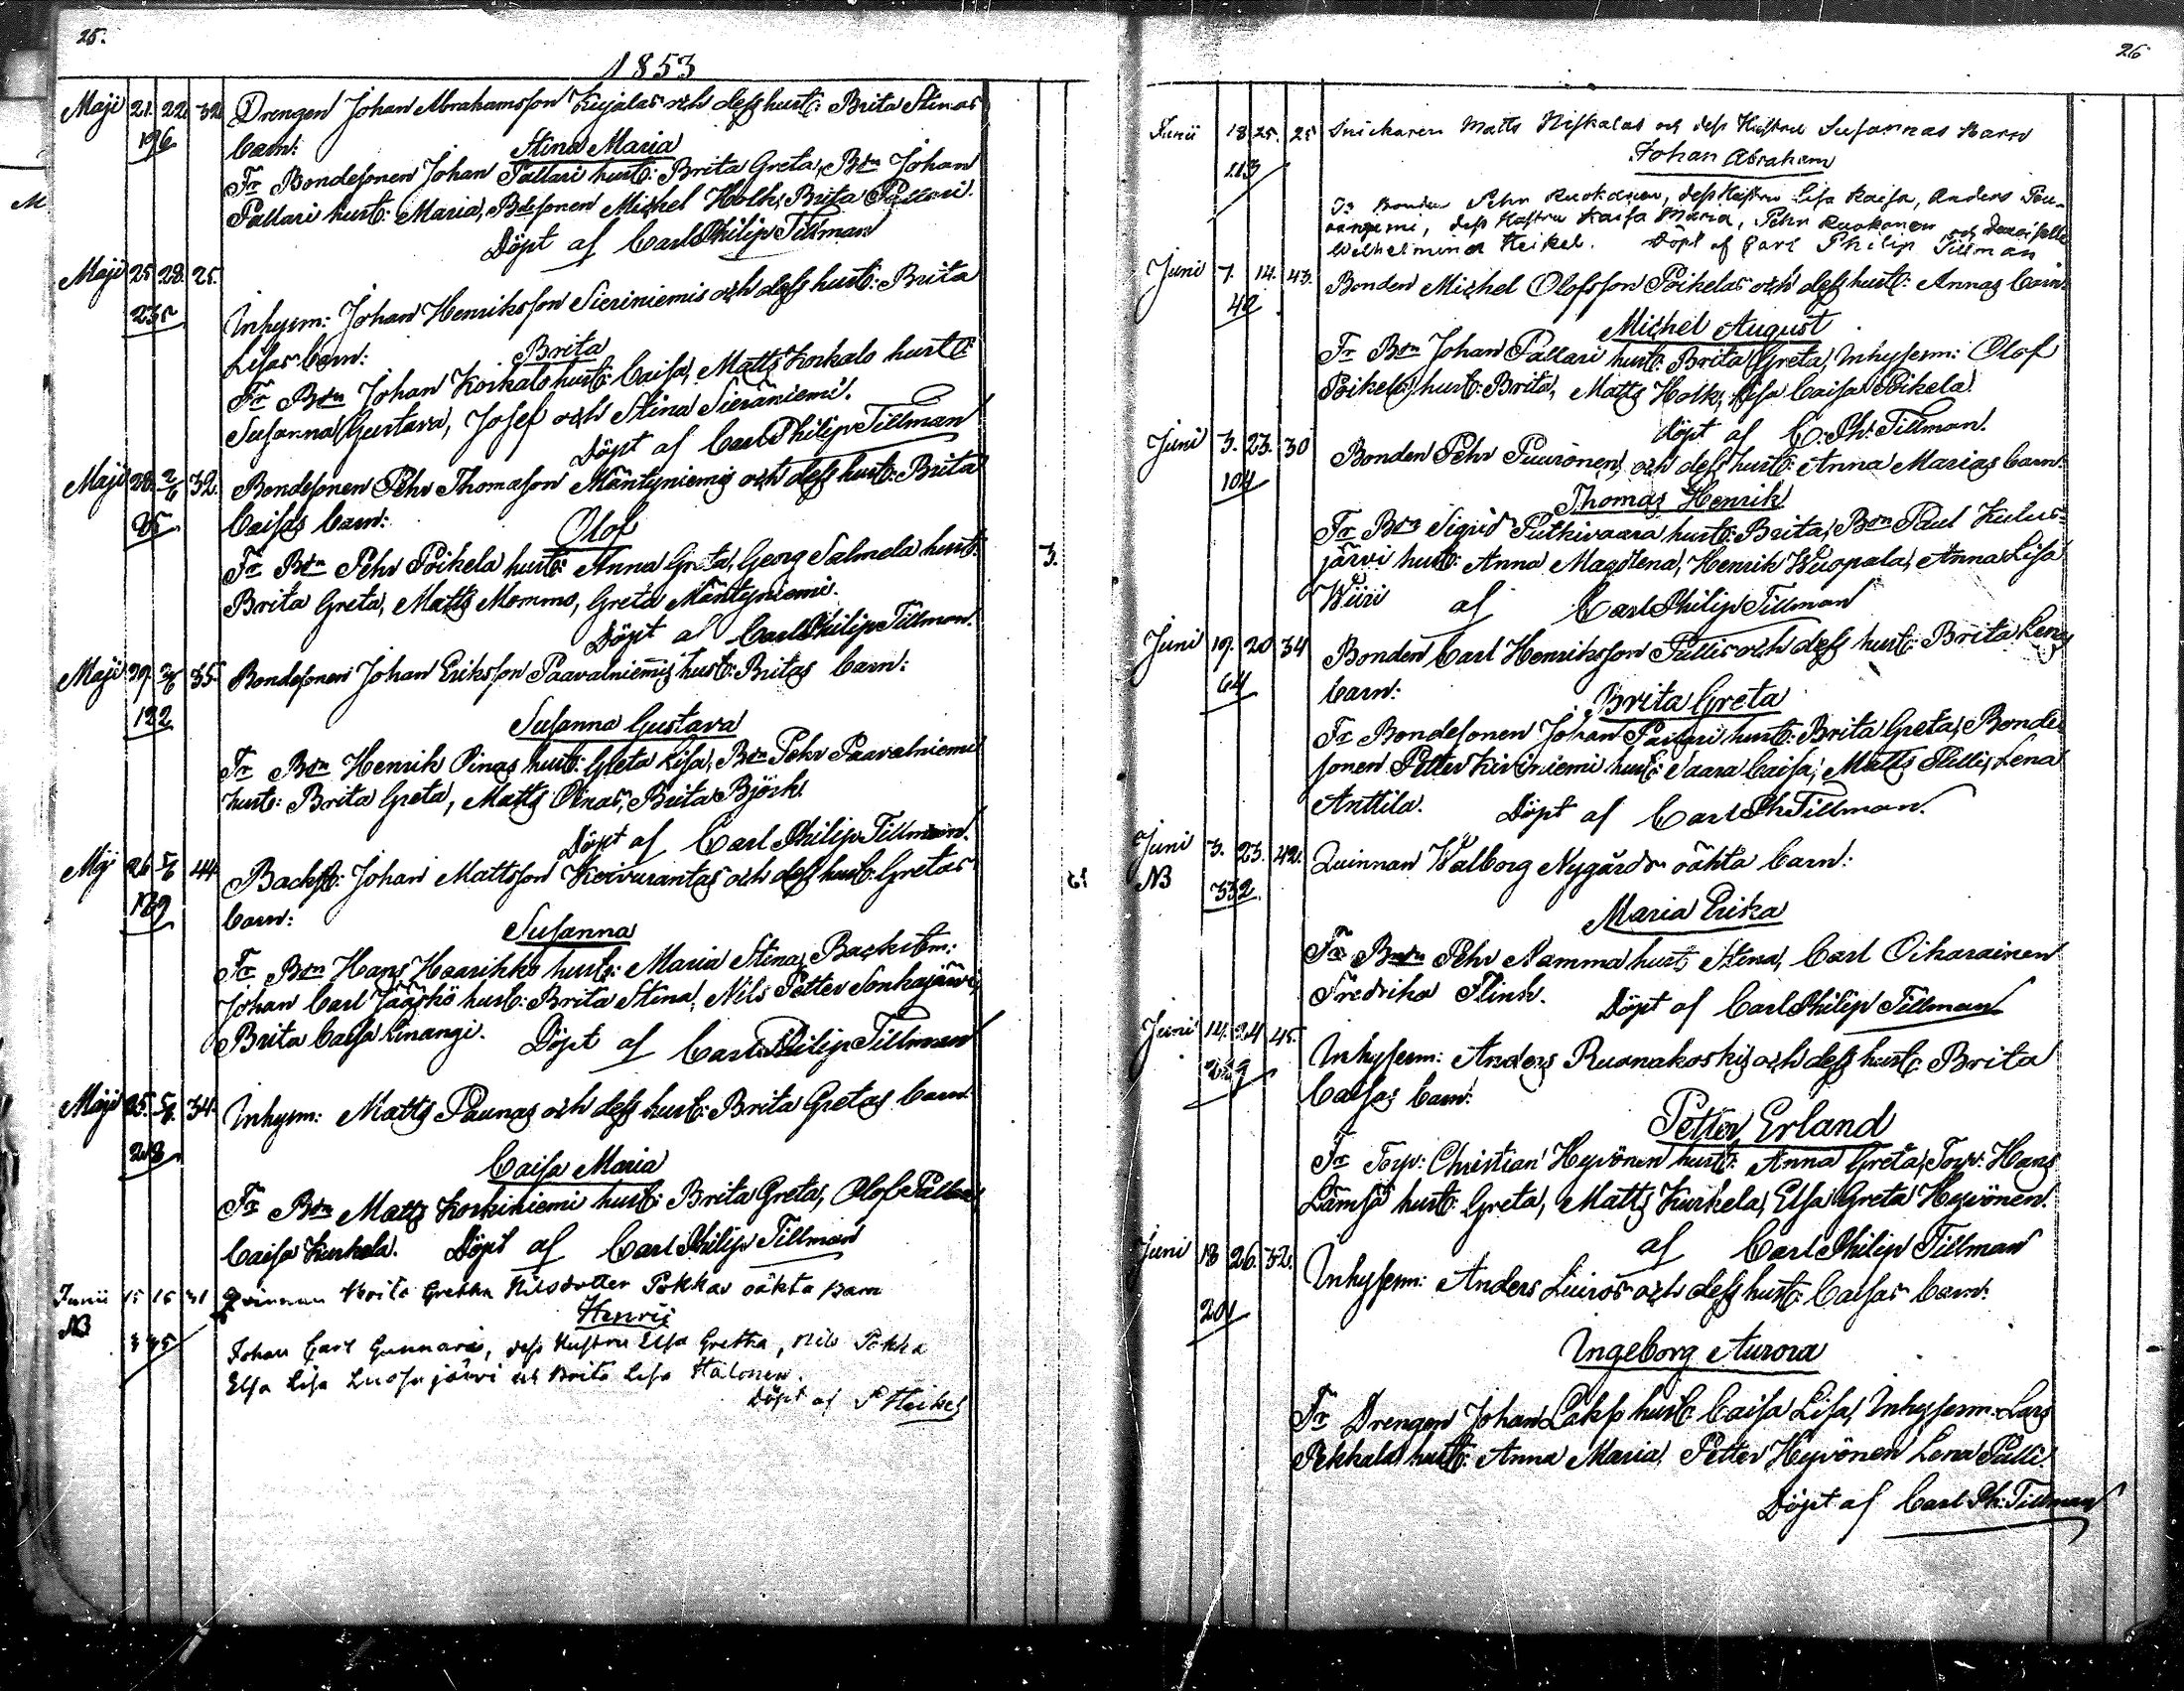 25.
1853
Maji 21. 22. 32. Drengen Johan Abrahamsson Kujalas och dess hust: Brita Stinas
196 barn: Stina Maria
Fr Bondesonen Johan Pallari hust: Brita Greta, Bdn Johan
Pallari hust: Maria, Bdesonen Michel Holk, Brita Pallari.
Döpt af Carl Philip Tillman
Maji 25 28. 25.
235 Inhysm: Johan Henriksson Sieriniemis och dess hust: Brita
Lisas barn: Brita
Fr Bdn Johan Korkalo hust: Caisa, Matts Korkalo hust:
Susanna Gustava, Josef och Stina Sieriniemi.
Döpt af Carl Philip Tillman
Maji 28. 2/6 32. Bondesonen Pehr Thomasson Mäntyniemis och dess hust: Brita
25 Caisas barn: Olof
Fr Bdn Pehr Poikela hust: Anna Greta, Georg Salmela hust:
Brita Greta, Matts Mommo, Greta Mäntyniemi.
Döpt af Carl Philip Tillman.
3.
Maji 29. 35. Bondesonen Johan Eriksson Paavalniemis hust: Britas barn:
122 Susanna Gustava
Fr Bdn Henrik Oinas hust: Greta Lisa, Bdn Pehr Paavalniemi
hust: Brita Greta, Matts Oinas, Brita Björk.
Döpt af Carl Philip Tillman.
Maji 26 5/6 44. Backst: Johan Mattsson Koivurantas och dess hust: Gretas
barn: Susanna
Fr Bdn Hans Haarihko hust: Maria Stina, Backstm:
Johan Carl Jääskö hust: Brita Stina, Nils Petter Sonkajärvi,
Brita Caisa Linangi. Döpt af Carl Philip Tillman
Maji 25. 5/6. 34. Inhysm: Matts Paunas och dess hust: Brita Gretas barn
Caisa Maria
Fr Bdn Matts Koskiniemi hust: Brita Greta, Olof
Caisa Kurkela. Döpt af Carl Philip Tillman
Junii 15 16 31 Qvinnan Brita Gretha Nilsdotter Pokkas oäkta Barn
NB Henric
Johan Carl Gunnari, dess Hustru Elsa Gretha, Nils Pokka
Elsa Lisa Luosujärvi och Brita Lisa Halonen.
Döpt af Heikel
26
Junii 18 25. 25 Snickaren Matts Niskalas och dess Hustrus Susannas Barn
113 Johan Abraham
Fr Bonden Pehr Ruokanen, dess Hustru Lisa Kaisa, Anders
dess Hustru Kaisa Maria, Pehr Ruokanen och Demoiselle
Wilhelmina Heikel. Döpt af Carl Philip Tillman
Juni 7. 14. 43. Bonden Michel Olofsson Poikelas och dess hust: Annas barn
42 Michel August
Fr Bdn Johan Pallari hust: Brita Greta, Inhysesm: Olof
Poikela hust: Brita, Matts Holk, Lisa Caisa Poikela.
Döpt af C: Ph: Tillman.
Juni 3. 23. 30 Bonden Pehr Puuronen, och dess hust: Anna Marias barn.
104 Thomas Henrik
Fr Bdn Sigrid Putkivaara hust: Brita, Bdn Paul Kulus-
järvi hust: Anna Magdlena, Henrik Wuopala, Anna Lisa
Wiiri af Carl Philip Tillman
Juni 19. 20 34 Bonden Carl Henriksson Pullis och dess hust: Brita Lenas
64 barn: Brita Greta
Fr Bondesonen Johan Pallari hust: Brita Greta, Bonde
sonen Petter Kiviniemi hust: Saara Caisa, Matts Pulli, Lena
Anttila. Döpt af Carl Ph Tillman.
Juni 3. 23. 42. Quinnan Walborg Nygårds oähta barn:
NB 332 Maria Erika
Fr Bdn Pehr Namma hust: Stina, Carl Oikarainen
Fredrika Flink. Döpt af Carl Philip Tillman
Juni 14. 24 45. Inhysesm: Anders Ruonakoskis och dess hust: Brita
Caisas barn: Petter Erland
Fr Torp: Christian Hyvönen hust: Anna Greta, Torp: Hans
Lämsä hust: Greta, Matts Kurkela, Elsa Greta Hyvönen.
af Carl Philip Tillman
Juni 18 26. 32. Inhysesm: Anders Luiros och dess hust: Caisas barn:
201
Ingeborg Aurora
Fr Drengen Johan Lakso hust: Caisa Lisa, Inhysesm: Lars
Pekkala hust: Anna Maria, Petter Hyvönen Lena Pulli.
Döpt af Carl Ph: Tillman